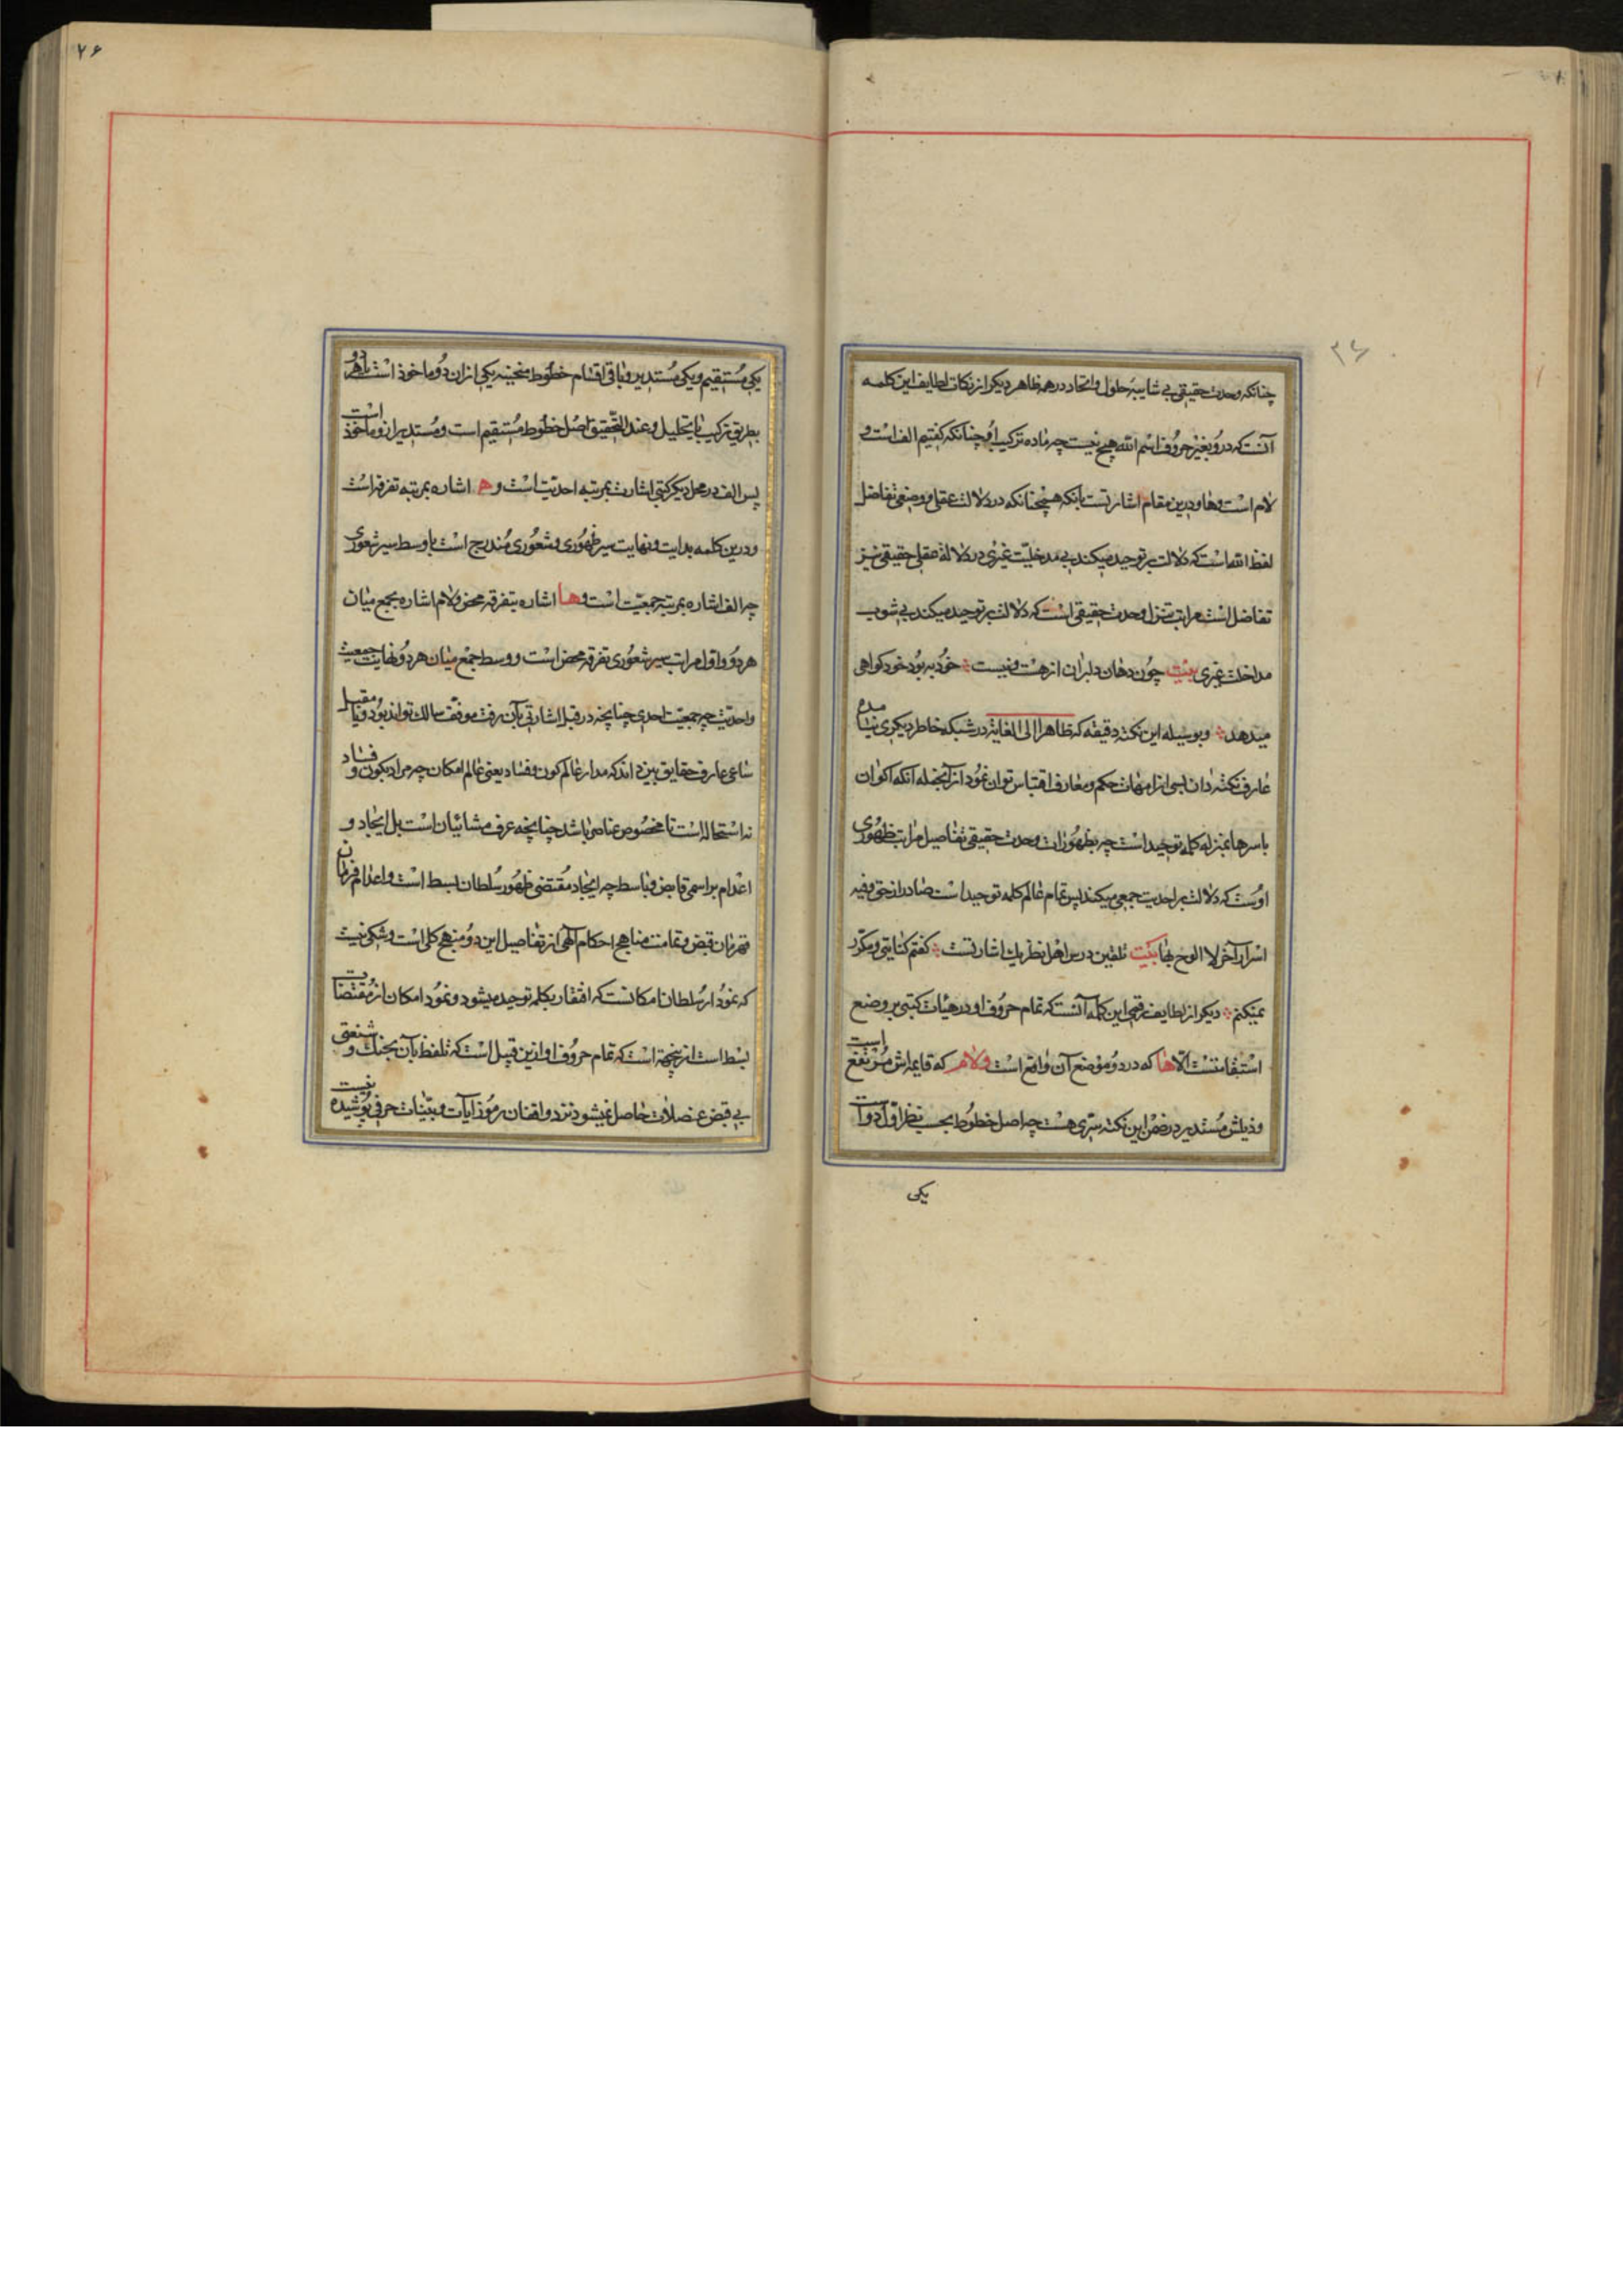 چنانکه وحدت حقیقی بی شایبه حلول و اتحاد در همه ظاهر دیگر از نکات لطایف این کلمه
آنست که درو بغیر حروف اسم الله هیچ نیست چه ماده ترکیب او چنانکه گفتیم الف است و
لام است و ها و درین مقام اشارتست بآنکه همچنانکه در دلالت عقلی و وضعی تفاضل
لفظ الله است که دلالت بر توحید میکند بی مدخلیت غیری در دلالة عقلی حقیقی نیز
تفاضل است مراتب تنزل وحدت حقیقی است که دلالت بر توحید میکند بی شوب
مداخلت غیری بیت چون دهان دلبران از هست و نیست خود به بود خود کواهی
میدهد و بوسیله این نکته دقیقه که ظاهرا الی الغایة در شبکه خاطر دیکری نیامده
عارف نکته دان بسی از امهات حکم و معارف اقتباس توان نمود از آنجمله آنکه اکوان
باسرها بمنزله کلمه توحید است چه بظهورات وحدت حقیقی تفاصیل مراتب ظهوری
اوست که دلالت بر احدیت جمعی میکند پس تمام عالم کلمه توحید است صادر از حق و فیه
اسرار آخر لا الوح بها بیت تلقین درس اهل نظر یک اشارتست گفتم کنایتی و مکرر
نمیکنم دیکر از لطایف رقمی این کلمه آنست که تمام حروف او در هیات کتبی بر وضع
استقامتست الا ها که در دو موضع آن واقع است و لام که قایمه اش مرتفع است
و ذیلش مستدیر در ضمن این نکته سری هست چه اصل خطوط بحسب نظر اول دو است
یکی
۷۶
یکی مستقیم و یکی مستدیر و باقی اقسام خطوط منحنیه یکی ازان دو ماخوذ است یا هر دو
بطریق ترکیب یا تحلیل و عند التحقیق اصل خطوط مستقیم است و مستدیر ازو ماخوذ است
پس الف در محل دیکر کتبی اشارت بمرتبه احدیت است و ه اشاره بمرتبه تفرقه است
و درین کلمه بدایت و نهایت سیر ظهوری و شعوری مندرج است با وسط سیر شعوری
چه الف اشاره بمرتبه جمعیت است و ها اشاره بتفرقه محض و لام اشاره بجمع میان
هر دو و اول مراتب سیر شعوری تفرقه محض است و وسط جمع میان هر دو و نهایت جمعیت
و احدیت چه جمعیت احدی چنانچه در قبل اشارتی بآن رفت موقف سالک تواند بود و یا مقیل
ساعی عارف حقایق بین داند که مدار عالم کون و فساد یعنی عالم امکان چه مراد بکون و فساد
نه استحاله است تا مخصوص عناصر باشد چنانچه عرف مشائیان است بل ایجاد و
اعدام بر اسمی قابض و باسط چه ایجاد مقتضی ظهور سلطان بسط است و اعدام فرمان
قهرمان قبض و تمامت مناهج احکام الهی از تفاصیل این دو منهج کلی است و شکی نیست
که نمودار سلطان امکانست که افتقار بکلمه توحید میشود و نمود امکان از مقتضات
بسط است ازینجهة است که تمام حروف او ازین قبیل است که تلفظ بآن بجنک و شفتی
بی قبض عضلات حاصل نمیشود نزد واقفان رموز آیات و بینات حرفی پوشیده نیست